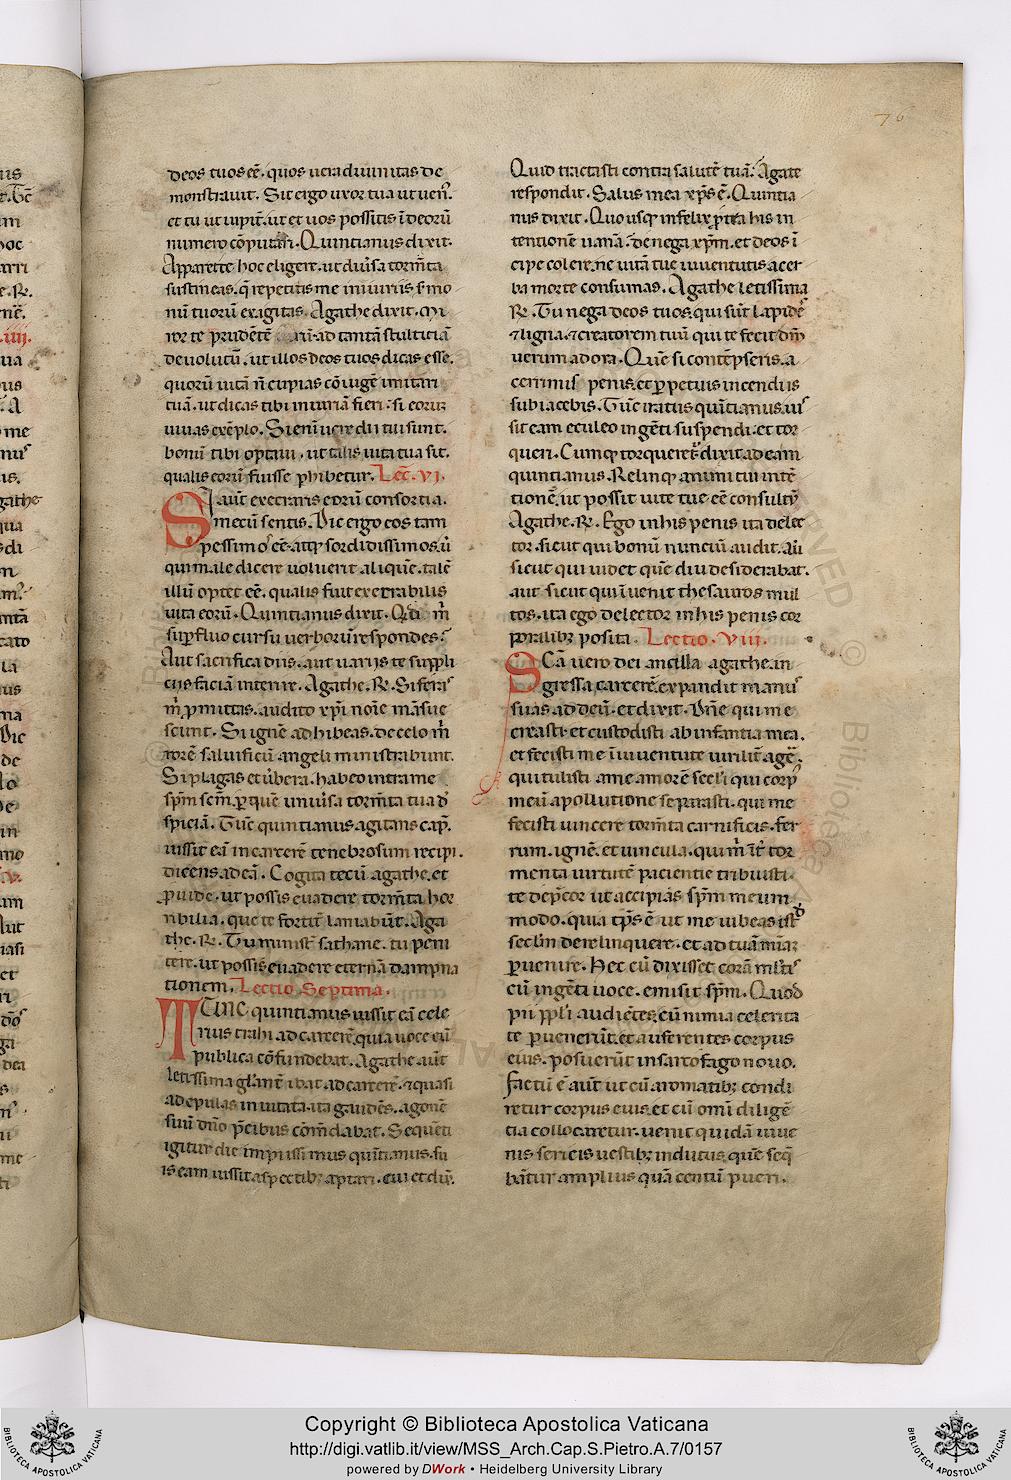 76
deos tuos eẽ. quos uera diuinitas de
monstrauit. Sit ergo uxor tua ut uen̾.
et tu ut iupit̾. ut et uos possitis ĩ deorũ
numero cõputari. Quintianus dixit.
Apparette hoc eligere. ut diu̾sa torm̃ta
sustineas. q̃ repetitis me iniuriis s̾mo
nũ tuorũ exagitas. Agathe dixit. Mi
ror te prudẽtẽ uirũ ad tantã stultitiã
deuolutũ. ut illos deos tuos dicas esse.
quorũ uitã ñ cupias cõiugẽ imitari
tuã. ut dicas tibi iniuriã fieri. si eoruꝝ
uiuas exẽplo. Si enĩ uere dii tui sunt.
bonũ tibi optaui. ut talis uita tua sit.
qualis eorũ fuisse ꝑhibetur. Lec̃. VI.
SI aut̃ execraris eorũ consortia.
mecũ sentis. Dic ergo eos tam
pessimos eẽ. atqꝫ sordidissimos. ut̾
qui male dicere uoluerit aliquẽ. talẽ
illũ optet eẽ. qualis fuit execrabilis
uita eorũ. Quintianus dixit. Qd̾ m̾
suꝑfluo cursu uerborũ respondes?
Aut sacrifica diis. aut uariis te suppli
ciis faciã interire. Agathe. R̾. Si feras
m̾ ꝑmittas. audito xp̃i noĩe mãsue
scunt. Si ignẽ adhibeas. de celo m̾
rorẽ saluificũ angeli ministrabunt.
Si plagas et u̾bera. habeo intra me
sp̃m sc̃m. ꝑ quẽ uniu̾sa torm̃ta tua d̾
spiciã. Tũc quintianus agitans cap̃.
iussit eã in carcerẽ tenebrosum recipi.
dicens ad eã. Cogita tecũ agathe. et
ꝓuide. ut possis euadere torm̃ta hor
ribilia. que te fortit̾ laniabũt. Aga
the. R̾. Tu minist̾ sathane. tu peni
tere. ut possis euadere eternã dampna
tionem. Lectio Septima.
TUnc quintianus iussit eã cele
rius trahi ad carcerẽ. quia uoce eũ
publica cõfundebat. Agathe aut̃
letissima gl̃ant̃ ibat ad carcerẽ. ⁊ quasi
ad epulas inuitata. ita gaudẽs. agonẽ
suũ dño p̃cibus cõm̃dabat. Sequẽti
igitur die impiissimus quĩtianus. su
is eam iussit aspectibꝫ aptari. cui et dix̾.
Quid tractasti contra salutẽ tuã? Agate
respondit. Salus mea xp̃s ẽ. Quintia
nus dixit. Quousqꝫ infelix ꝓtra his in
tentionẽ uanã? denega xp̃m. et deos ĩ
cipe colere. ne uitã tue iuuentutis acer
ba morte consumas. Agathe letissima
R̾. Tu nega deos tuos. qui sũt lapides̾
⁊ ligna. ⁊ creatorem tuũ qui te fecit dm̃
uerum adora. Quẽ si contẽpseris. a
cerrimis penis. et ꝑpetuis incendiis
subiacebis. Tũc iratus quĩtianus. ius
sit eam eculeo ingẽti suspendi. et tor
queri. Cumqꝫ torqueret̾. dixit ad eam
quintianus. Relinqꝫ animi tui intẽ
tionẽ. ut possit uite tue eẽ consultũ.
Agathe. R̾. Ego in his penis ita delec
tor. sicut qui bonũ nunciũ audit. aut̾
sicut qui uidet quẽ diu desiderabat.
aut sicut qui ĩuenit thesauros mul
tos. ita ego delector in his penis cor
poralibꝫ posita. Lectio. VIII.
SCã uero dei ancilla agathe. in
gressa carcerẽ. expandit manus
suas ad deũ. et dixit. Dñe qui me
creasti. et custodisti ab infantia mea.
et fecisti me ĩ iuuentute uirilit̾ age̾.
qui tulisti a me amorẽ sec̃li qui corp̾
meũ a pollutione seꝑasti. qui me
fecisti uincere torm̃ta carnificis. fer
rum. ignẽ. et uincula. qui m̾ int̾ tor
menta uirtutẽ pacientie tribuisti.
te dep̃cor ut accipias sp̃m meum
modo. quia tp̃s ẽ ut me iubeas ist̾
sec̃lm derelinquere. et ad tuã mĩaꝫ
ꝑuenire. Hec cũ dixisset corã mltis̾
cũ ingẽti uoce. emisit sp̃m. Quod
pii ppl̃i audiẽtes. cũ nimia celerita
te ꝑuenerũt. et auferentes corpus
eius. posuerũt in sarcofago nouo.
Factũ ẽ aut̃ ut cũ aromatibꝫ condi
retur corpus eius. et cũ omĩ diligẽ
tia collocaretur. uenit quidã iuue
nis sericis uestibꝫ indutus. quẽ seq̃
bãtur amplius quã centũ pueri.
Copyright © Biblioteca Apostolica Vaticana
http://digi.vatlib.it/view/MSS_Arch.Cap.S.Pietro.A.7/0157
powered by DWork • Heidelberg University Library